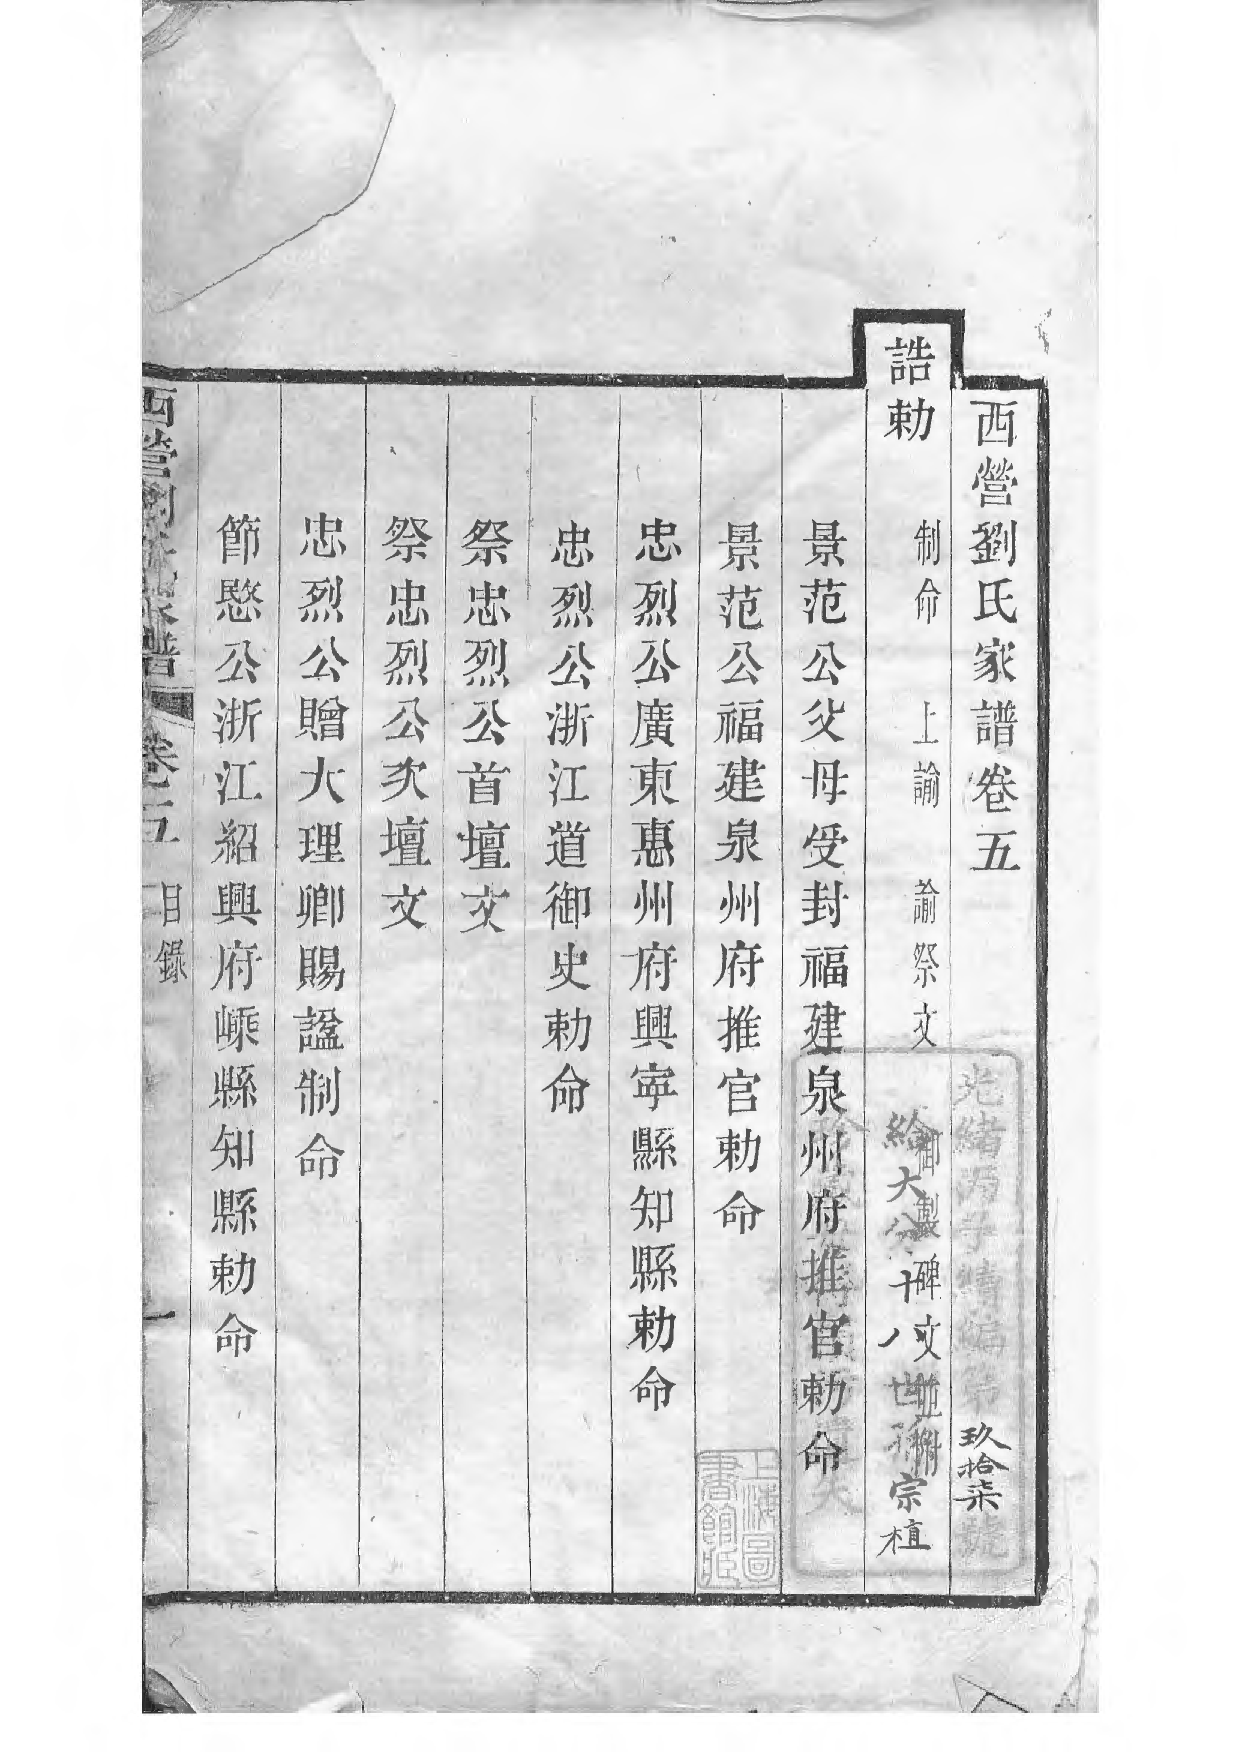 西營劉氏家譜卷五
誥勅 制命 上諭 諭祭文 御製碑文並附
景范公父母受封福建泉州府推官勅命
景范公福建泉州府推官勅命
忠烈公廣東惠州府興寧縣知縣勅命
忠烈公浙江道御史勅命
祭忠烈公首壇文
祭忠烈公次壇文
忠烈公贈大理卿賜諡制命
節愍公浙江紹興府嵊縣知縣勅命
西營劉氏家譜 卷五 目錄 一
光緒丙子續編第玖拾柒號
給大分十八世孫宗植
上海圖書館藏